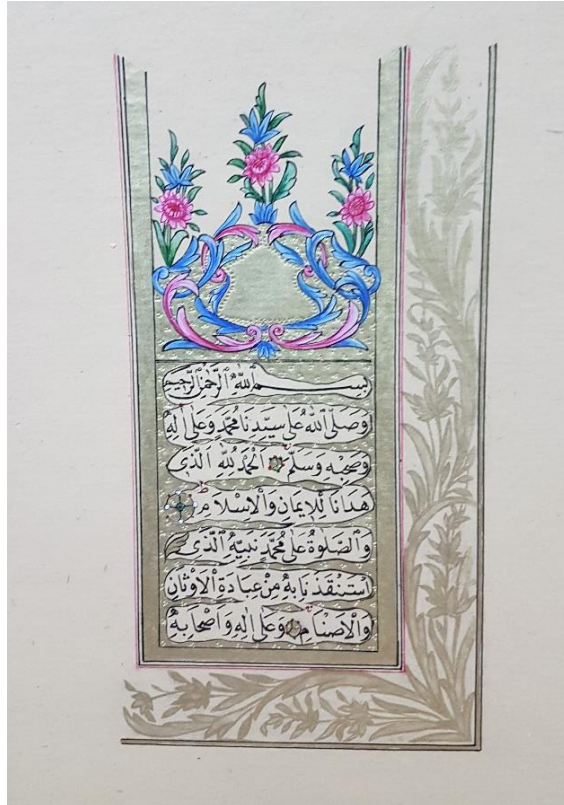 بِسْمِ اللّٰهِ الرَّحْمٰنِ الرَّحِيمِ
وَصَلَّى اللّٰهُ عَلٰى سَيِّدِنَا مُحَمَّدٍ وَعَلٰى اٰلِهِ
وَصَحْبِهِ وَسَلَّمَ اَلْحَمْدُ لِلّٰهِ الَّذٖى
هَدَانَا لِلْاِيمَانِ وَالْاِسْلَامِ
وَالصَّلٰوةُ عَلٰى مُحَمَّدٍ نَبِيِّهِ الَّذٖى
اسْتَنْقَذَنَا بِهِ مِنْ عِبَادَةِ الْاَوْثَانِ
وَالْاَصْنَامِ وَعَلٰى اٰلِهِ وَاَصْحَابِهِ